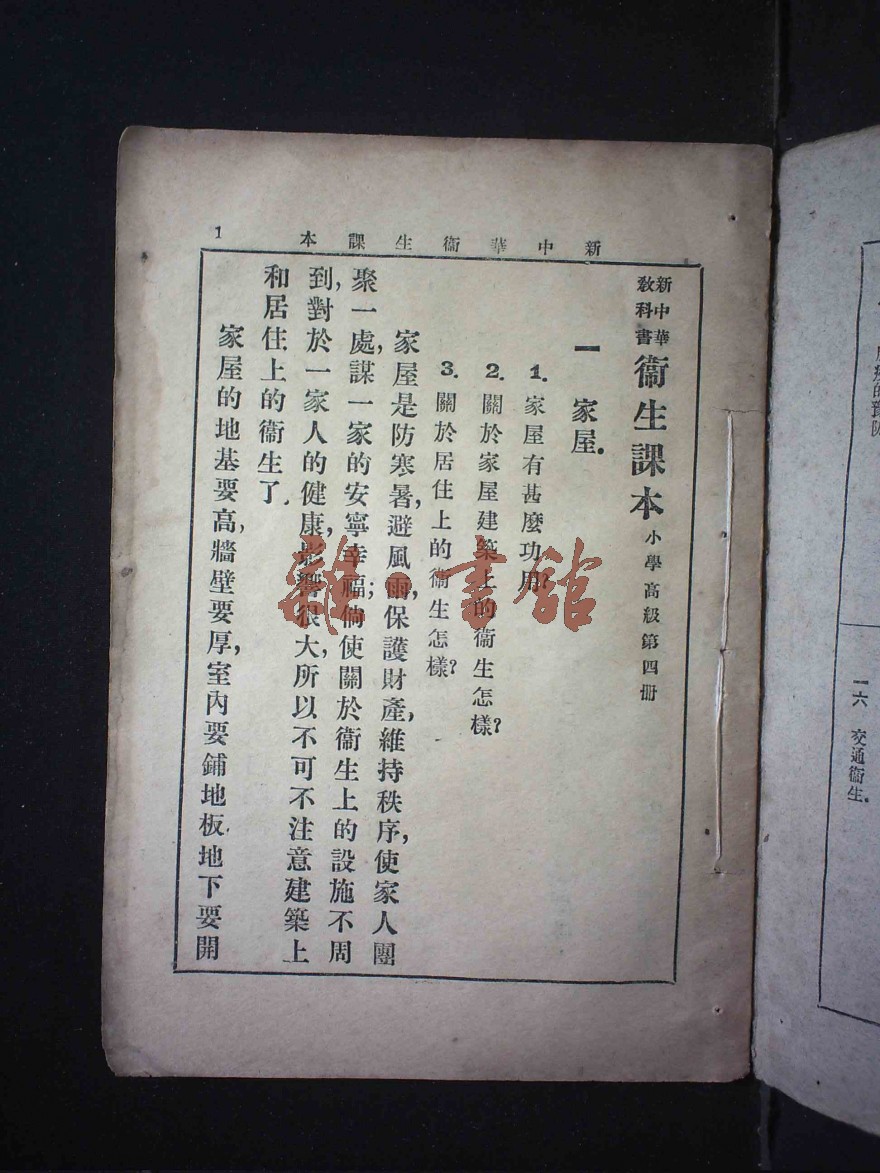 新中華衞生課本
1
新中華
教科書
衞生課本 小學高級第四册
一 家屋.
1. 家屋有甚麼功用?
2. 關於家屋建築上的衞生怎樣?
3. 關於居住上的衞生怎樣?
家屋是防寒暑,避風雨,保護財產,維持秩序,使家人團
聚一處,謀一家的安寧幸福;倘使關於衞生上的設施不周
到,對於一家人的健康,影響很大,所以不可不注意建築上
和居住上的衞生了.
家屋的地基要高,牆壁要厚,室內要鋪地板.地下要開
一六 交通衞生.
雜·書館